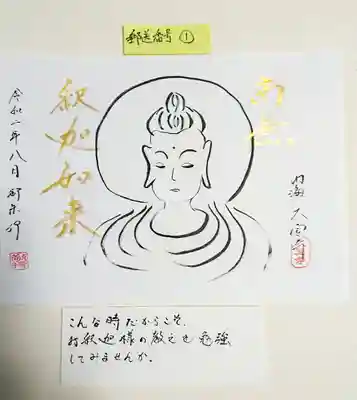 郵送番号 ①
南無
釈迦如来
令和二年八月
内海 大宝寺
こんな時だからこそ、
お釈迦様の教えを勉強
してみませんか。